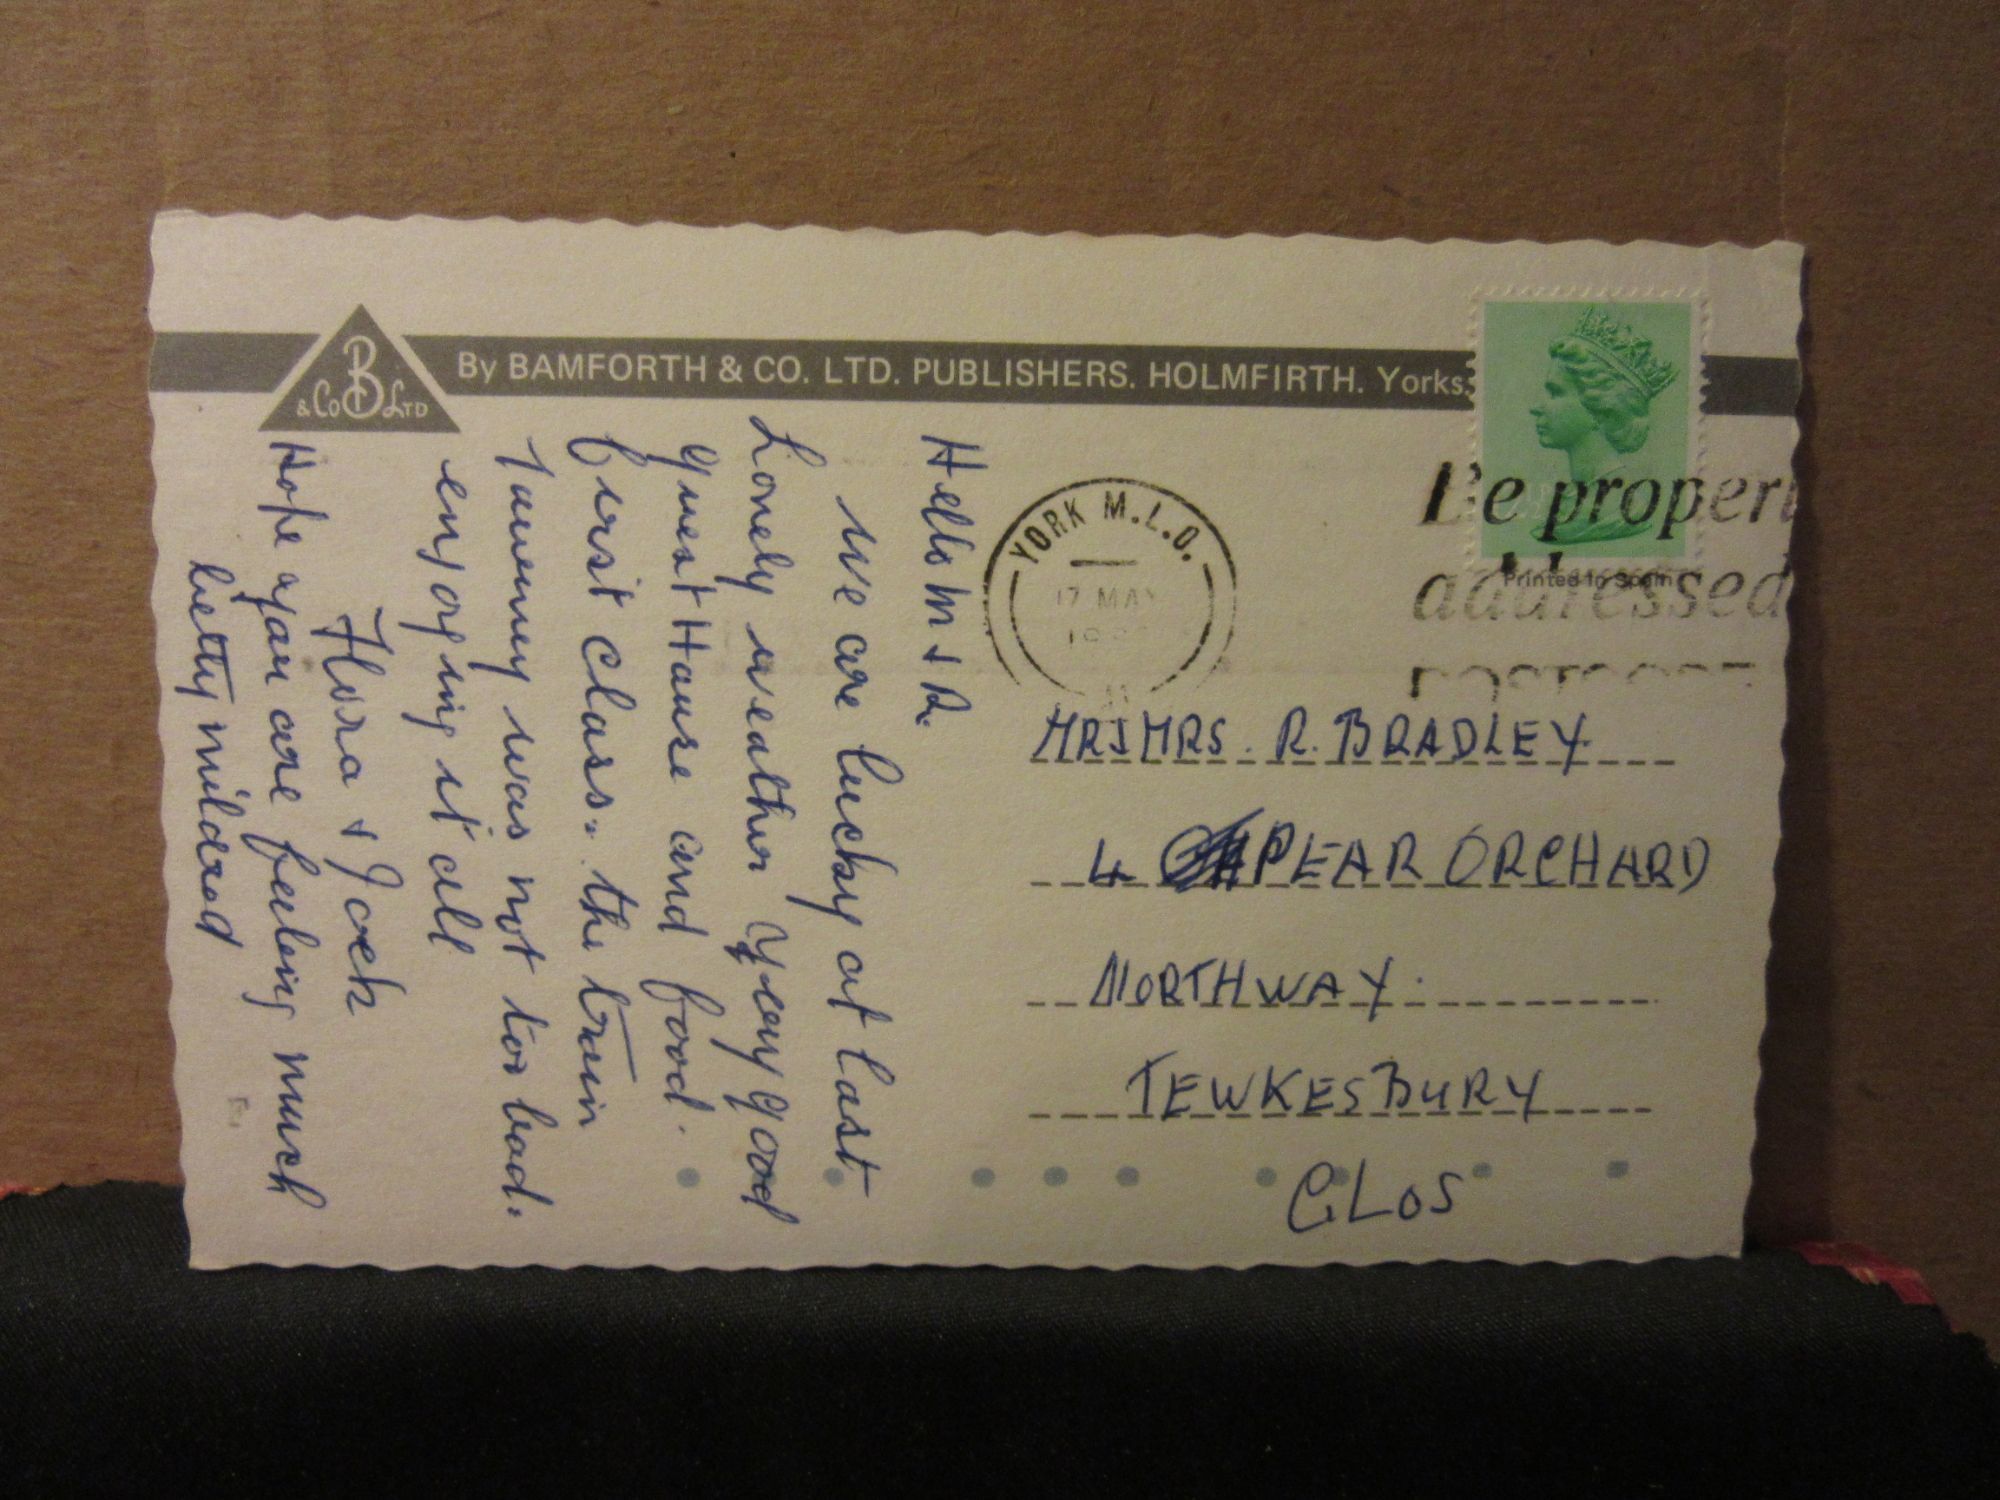 By BAMFORTH & CO. LTD. PUBLISHERS. HOLMFIRTH. Yorks.
B
& Co LTD
Hello M + R.
We are lucky at last
Lovely weather Very good
guest House and food.
First class. the train
Journey was not too bad.
enjoying it all
Flora & Jack
Hope you are feeling much
betty mildred
YORK M.L.O.
17 MAY
Be proper
addressed
Printed in Spain
MR & MRS. R. BRADLEY
4 PEAR ORCHARD
NORTHWAY.
TEWKESBURY
GLOS